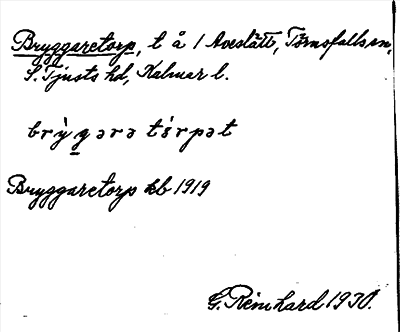 Bryggaretorp, t å 1 Aveslätt, Törnsfalls sn,
S. Tjusts hd, Kalmar l.
brỳg̱ərə tórpət
Bryggaretorp kb 1919
G. Reinhard 1930.